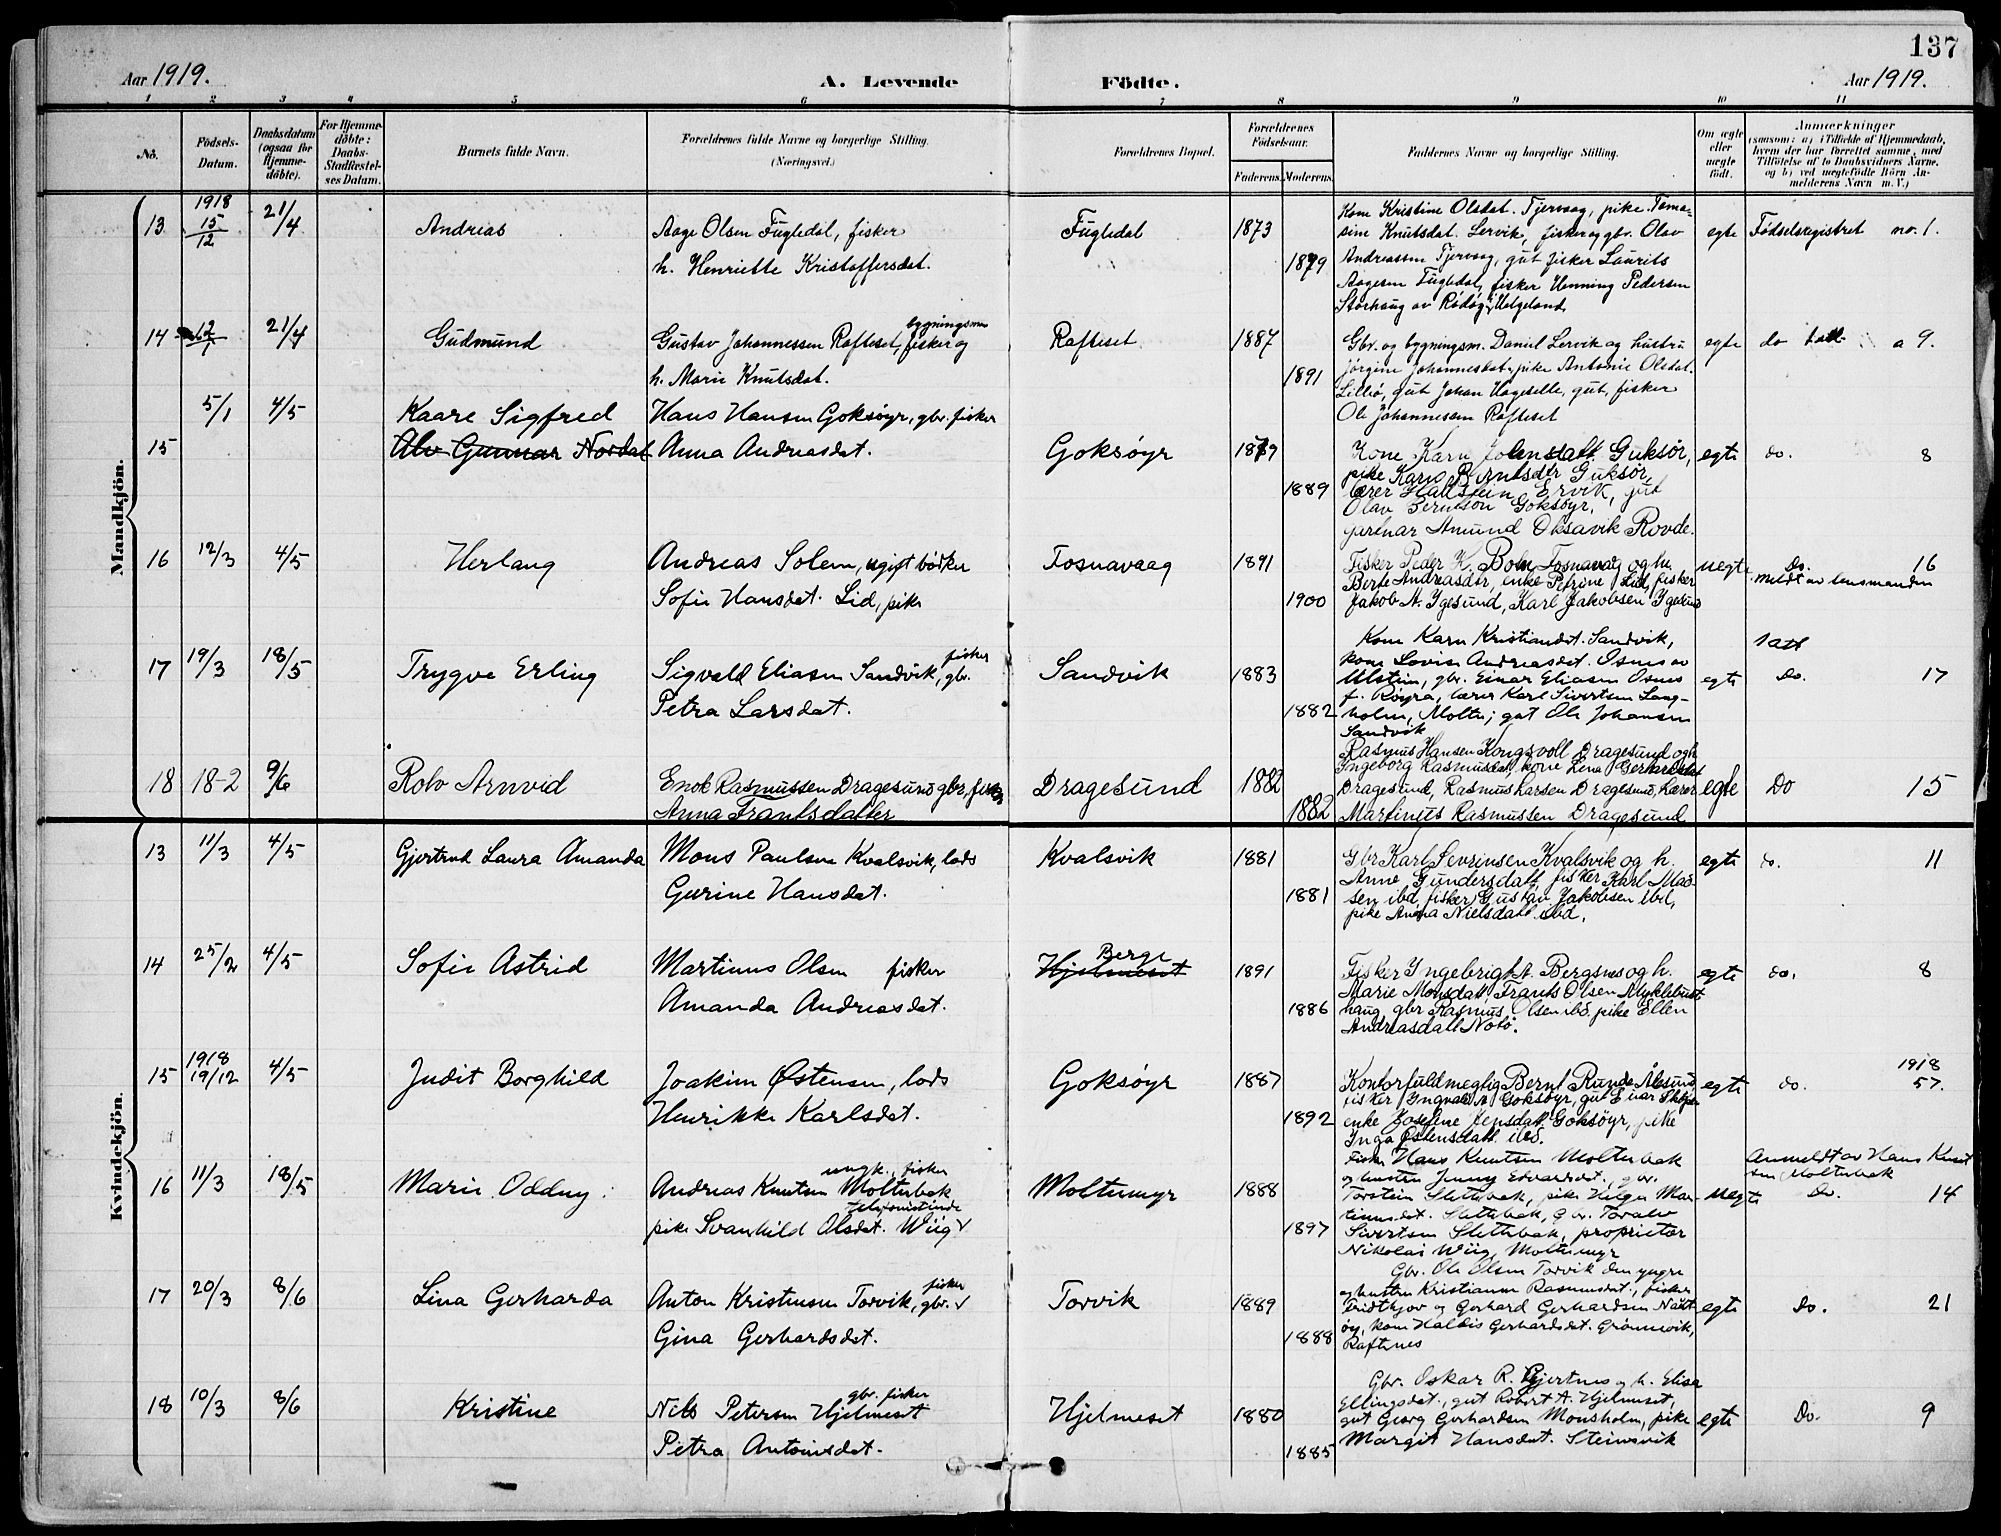 137
Aar 1919.
A. Levende Födte.
Aar 1919.
1 2 3 4 5 6 7 8 9 10 11
No.
Födsels-Datum.
Daabsdatum (ogsaa for Hjemme-döbte).
For Hjemme-döbte: Daabs-Stadfæstel-ses Datum.
Barnets fulde Navn.
Forældrenes fulde Navne og borgerlige Stilling.
(Næringsvei.)
Forældrenes Bopæl.
Forældrenes Födselsaar.
Faderens. Moderens.
Faddernes Navne og borgerlige Stilling.
Om ægte eller uægte födt.
Anmærkninger
(saasom: a) i Tilfælde af Hjemmedaab,
hvem der har forrettet samme, med
Tilföielse af to Daabsvidners Navne,
og b) ved uægtefödte Börn An-
melderens Navn m. V.)
Mandkjön.
13 1918 15/12 21/4 Andreas
Aage Olsen Fugledal, fisker
h. Henriette Kristoffersdat.
Fugledal 1873 1879
Kone Kristine Olsdat. Tjervaag, pike Toma-
sine Knutsdat. Lervik, fisker og gbr. Olav
Andreassen Tjervaag, gut fisker Laurits
Aagesen Fugledal, fisker Henning Pedersen
Storhaug av Rödøy i Helgeland
egte Fødselsregistret no. 1.
14 21/4 Gudmund
Gustav Johannessen Rafteset, fisker og bygningsm
h. Marie Knutsdat.
Rafteset 1887 1891
Gbr. og bygningsm. Daniel Lervik og hustru
Jörgine Johannesdat. pike Antonie Olsdat.
Lillö, gut Johan Hageselle, gut, fisker
Ole Johannessen Rafteset
egte do 9.
15 5/1 4/5 Kaare Sigfred
Alv Gunnar Nordal
Hans Hansen Goksøyr, gbr. fisker
Anna Andreasdat.
Goksøyr 1879 1889
Kone Karn Jolensdatt. Guksör,
pike Karn Berntsdtr Guksör,
lærer Hallstein Ervik, gut
Olav Berntson Goksöyr,
gartnar Amund Oksavik Rovde.
egte do. 8
16 12/3 4/5 Herlaug
Andreas Solem, ugift bødker
Sofie Hansdat. Lid, pike
Fosnavaag 1891 1900
Fisker Peder K. Bolm Fosnavaag og hu
Berte Andreasdtr, enke Petrine Lid, fisker
Jakob A. Ygesund, Karl Jakobsen Ygesund
uegte Do. 16
Meldt av lensmanden
17 19/3 18/5 Trygve Erling
Sigvald Eliasen Sandvik, gbr. fisker
Petra Larsdat.
Sandvik 1883 1882
Kone Karn Kristiansdat. Sandvik,
kone Lovise Andreasdat. Osnes av
Ulstein, gbr. Einar Eliasen Osnes
f. Røyra, lærer Karl Sivertsen Lang-
holm, Moltu; gut Ole Johansen
Sandvik
egte 1 att Do. 17
18 18-2 9/6 Rolv Arnvid
Enok Rasmussen Dragesund gbr, fisker
Anna Frantsdatter
Dragesund 1882 1882
Rasmus Hansen Kongsvoll Dragesund og h
Ingeborg Rasmusdat, kone Lena Gerhardsdat
Dragesund, Rasmus Larsen Dragesund, Lærer
Martinus Rasmussen Dragesund
egte Do 15
Kvindekjön.
13 11/3 4/5 Gjertrud Laura Amanda
Mons Paulsen Kvalsvik, lods
Gurine Hansdat.
Kvalsvik 1881 1881
Gbr Karl Sevrinsen Kvalsvik og h.
Anne Gundersdatt, fisker Karl Mad-
sen ibd, fisker Gustav Jakobsen ibd,
pike Anna Nielsdatt. ibd.
egte do. 11
14 25/2 4/5 Sofie Astrid
Martinus Olsen fisker
Amanda Andreasdat.
Berge
Hjelmeset 1891 1886
Fisker Ingebrigt A. Bergsnes og h.
Marie Monsdatt, Frants Olsen Myklebust
haug, gbr Rasmus Olsen ibd. pike Ellen
Andreasdatt Notö.
egte do. 8
15 1918 19/12 4/5 Judit Borghild
Joakim Østensen, lods
Henrikke Karlsdat.
Goksøyr 1887 1892
Kontorfuldmegtig Bernt Runde Ålesund
fisker Ingvald M Goksøyr, gut Einar
enke Josefine Jensdatt. Goksöyr, pike
Inga Østensdatt. ibd.
egte do. 1918 57.
16 11/3 18/5 Marie Oddny
Andreas Knutsen Moltubak ungk., fisker
pike Svanhild Olsdat. Wiig telefonistinde
Moltumyr 1888 1897
Fisker Hans Knutsen Moltubak
og hustru Jenny Edvardsdt., gbr.
Torstein Slettebak, pike Helga Mar-
tinusdat. Slettebak, Gbr. Toralv
Sivertsen Slettebak, proprietær
Nikolai Wiig, Moltumyr
uegte
Anmeldt av Hans Knut
sen Moltubak
Do. 14
17 20/3 8/6 Lina Gerharda
Anton Kristensen Torvik, gbr. fisker
Gina Gerhardsdat.
Torvik 1889 1888
Gbr. Ole Olsen Torvik den yngre
og hustru Kristianne Rasmusdat., fisker
Fridthjov og Gerhard Gerhardsen Nöst-
øy, kone Haldis Gerhardsdat. Grönnevik,
Raftenes
egte Do. 21
18 10/3 8/6 Kristine
Nils Petersen Hjelmeset gbr. fisker
Petra Antonisdat.
Hjelmeset 1880 1885
Gbr. Oskar R. Gjertnes og h. Elisa
Ellingsdat., gut Robert A. Hjelmeset,
gut Georg Gerhardsen Monsholm, pike
Margit Hansdat. Steinsvik
egte Do. 9